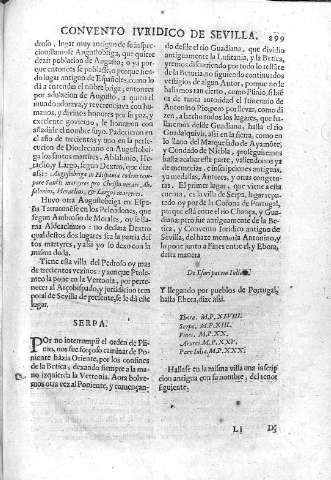 CONVENTO IVRIDICO DE SEVILLA. 299
drosa, lugar muy antiguo de su aspec-
cion llamose Augustobriga, que quiere
dezir poblacion de Augusto; o ya por-
que entonces se poblasse, o porque sien-
do lugar antiguo de Españoles, como lo
dà a entender el nõbre briga; entonces
por adulacion de Augusto, a quien el
mundo adorava, y reverenciava con hu-
manos, y divinos honores por su paz, y
excelente govierno, le honraron con
añadirle el nombre suyo. Padecieron en
el año de trecientos y uno en la perse-
cucion de Diocleciano en Augustobri-
ga los santos martires, Abidonio, He-
raclio, y Largo, segun Dextro, que dize
assi: Augustobriga in Hispania eodem tem-
pore sancti martyres pro Christo necati, Ab-
sidonius, Heraclius, & Largus martyres.
Huvo otra Augustobriga en Espa-
ña Tarraconense en los Pelendones, que
segun Ambrosio de Morales, oy se lla-
ma Aldeaelmuro: no declara Dextro
qual destos dos lugares sea la patria des-
tos martyres, y assi yo lo dexo con la
misma duda.
Tiene esta villa del Pedroso oy mas
de trecientos vezinos: y aunque Ptolo-
meo la pone en la Vettonia, por perte-
necer al Arçobispado, y jurisdicion tem-
poral de Sevilla de presente, se le dà este
lugar.
SERPA.
POr no interrumpir el orden de Pli-
nio, nos fue forçoso caminar de Po-
niente házia Oriente, por los confines
de la Betica, dexando siempre a la ma-
no izquierda la Vettonia. Aora bolve-
mos otra vez al Poniente, y començan-
do desde el rio Guadiana, que dividio
antiguamente la Lusitania, y la Betica,
yremos discurriendo por todo lo restãte
de la Beturia, no siguiendo continuados
vestigios de algun Autor, porque no le
hallamos tan cierto, como Plinio, si bien
es de tanta autoridad el Itinerario de
Antonino Pio, pero por llevar, como di-
zen, a hecho todos los lugares, que ha-
llamos desde Guadiana, hasta el rio
Guadalquivir, assi en la sierra, como en
lo llano del Marquesado de Ayamõte,
y Condado de Niebla, proseguiremos
hasta acabar esta parte, valiendonos ya
de memorias, e inscripciones antiguas,
ya medallas, Autores, y otras congetu-
ras. El primer lugar, que viene a esta
cuenta, es la villa de Serpa, lugar peque-
ño, y oy por de la Corona de Portugal,
que està entre el rio Chança, y Guadia-
na: pero fue antiguamente de la Betica,
y Convento Iuridico antiguo de
Sevilla, del haze memoria Antonino, y
lo pone junto a Fines entre el, y Ebora,
desta manera
De Esuri pacem Iulia.
Y llegando por pueblos de Portugal,
hasta Ebora, dize assi.
Ebora. M.P.XLIIII.
Serpa. M.P.XIII.
Fines. M.P.XX.
Arucci. M.P.XXV.
Pace Iulia. M.P.XXX.
Hallase en la misma villa una inscrip-
cion antigua con su nombre, del tenor
siguiente.
Ll